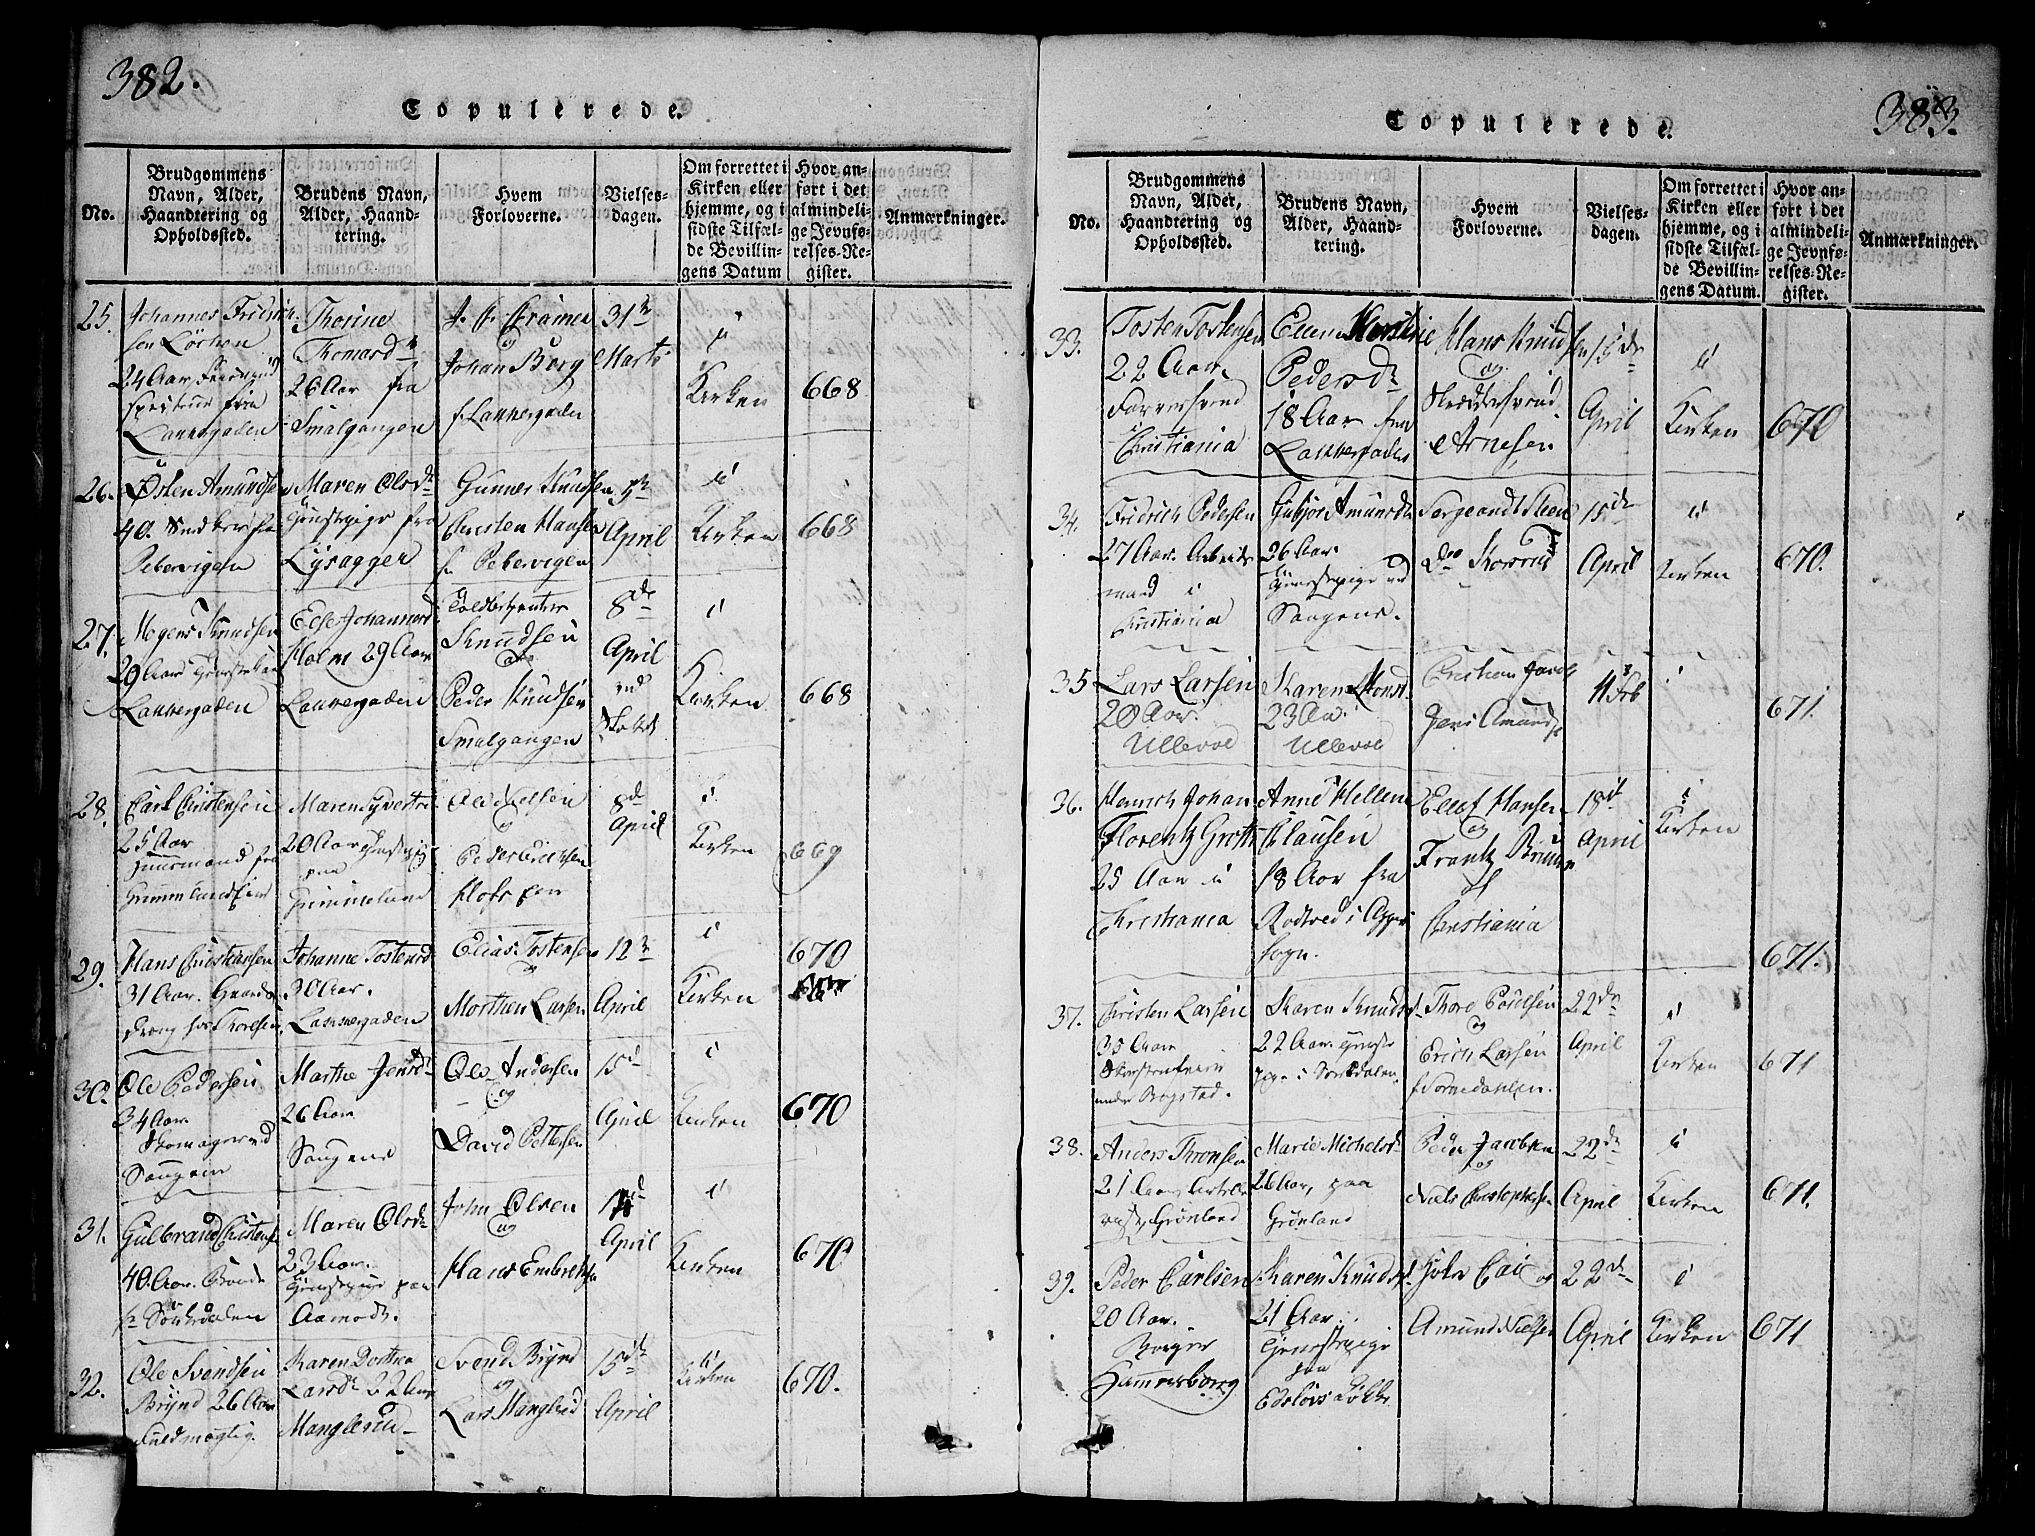 382.
Copulerede.
No.
Brudgommens
Navn, Alder,
Haandtering og
Opholdssted.
Brudens Navn,
Alder, Haand-
tering.
Hvem
Forloverne.
Vielses-
dagen.
Om forrettet i
Kirken eller
hjemme, og i
sidste Tilfæl-
de Bevillin-
gens Datum
Hvor an-
ført i det
almindeli-
ge Jevnfø-
relses-Re-
gister.
Anmærkninger.
25.
Johannes Fridrich
24 Aar
fra
Lakkergaden
Thorine
Thomasd
26 Aar fra
Smalgangen
Johan Borg
f. Lakkergaden
31
Marts
i
Kirken
668
26.
Østen Amundsen
40. Snedker fra
Pebervigen
Maren Olsd
Tjenstepige fra
Lysagger
Gunner Knudsen
Christen Hansen
f. Pebervigen
April
i
Kirken
668
27.
Mogens Knudsen
29 Aar
Lakkergaden
Else Johannesd
Holm 29 Aar
Lakkergaden
Knudsen
og
Peder Knudsen
Smalgangen
8de
April
i
Kirken
668
28.
Carl Christensen
25 Aar
Huusmand fra
Maren Syvertsd
20 Aar
paa
Ole Nelsen
og
Peder Erichsen
8de
April
i
Kirken
669
29.
Hans Christiansen
31 Aar. Gaards
dreng hos Thoresen
Johanne Tostensd
30 Aar.
Lakkergaden
Elias Tostensen
og
Morthen Larsen
12
April
i
Kirken
670
30.
Ole Pedersen
34 Aar.
Skomager ved
Sangen
Marthe Jensd
26 Aar
Sangene
Ole Andersen
og
David Pettersen
15d
April
i
Kirken
670
31.
Gulbrand Christensen
40. Aar. Bonde
fr Sørkedalen
Maren Olsd
23 Aar.
Tjenstepige paa
Aamodt.
John Olsen
og
Hans Embretsen
April
i
Kirken
670
32.
Ole Svendsen
Brynd 26 Aar
Fuldmægtig.
Karen Dorthea
Larsd 22 Aar
Manglerud
Svend Brynd
og
Lars Manglerud
15de
April
i
Kirken
670.
383.
Copulerede.
No.
Brudgommens
Navn, Alder,
Haandtering og
Opholdssted.
Brudens Navn,
Alder, Haand-
tering.
Hvem
Forloverne.
Vielses-
dagen.
Om forrettet i
Kirken eller
hjemme, og i
sidste Tilfæl-
de Bevillin-
gens Datum.
Hvor an-
ført i det
almindeli-
ge Jevnfø-
relses-Re-
gister.
Anmærkninger.
33.
Tosten Tostensen
22 Aar.
Farversvend
i Christiania
Ellen
Pedersd
18 Aar fra
Lakkergaden
Hans Knudsen
og
Skreddersvend
Arnesen
April
i
Kirken
670
34.
Fridrich Pedersen
27 Aar. Arbeids
mand i
Christiania
Gubjør Amundsd
26 Aar.
Tjenestepige ved
Sangene.
Sergeandt Steen
Do Korsrud
15de
April
i
Kirken
670.
35
Lars Larsen
20 Aar.
Ullevold
Karen
23 Aar.
Ullevold
Christian Jacob
Amunds
11 Feb
i
671.
36.
Henrich Johan
Florentz Groth
25 Aar i
Christiania
Anne Hellene
Clausen
18 Aar fra
Rodtved i Agger
Sogn.
Ellef Hansen
og
Frantz
af
Christiania
18d
April
i
Kirken
671.
37.
Christen Larsen
35 Aar
under Bogstad.
Karen Knudsd
22 Aar. Tjenste
pige i Sørkdalen
Thore Poulsen
og
Erich Larsen
22de
April
i
Kirken
671
38.
Anders Thronsen
21 Aar
Grønland
Marie Michelsd
26 Aar, paa
Grønland
Peder Jacobsen
og
Niels Christophersen
22de
April
i
Kirken
671.
39.
Peder Carlsen
20 Aar.
Borger
Hammersborg
Karen Knudsd
21 Aar.
Tjenestepige
paa
Edsløvs Løkke
og
Amund Nielsen
22de
April
i
Kirken
671